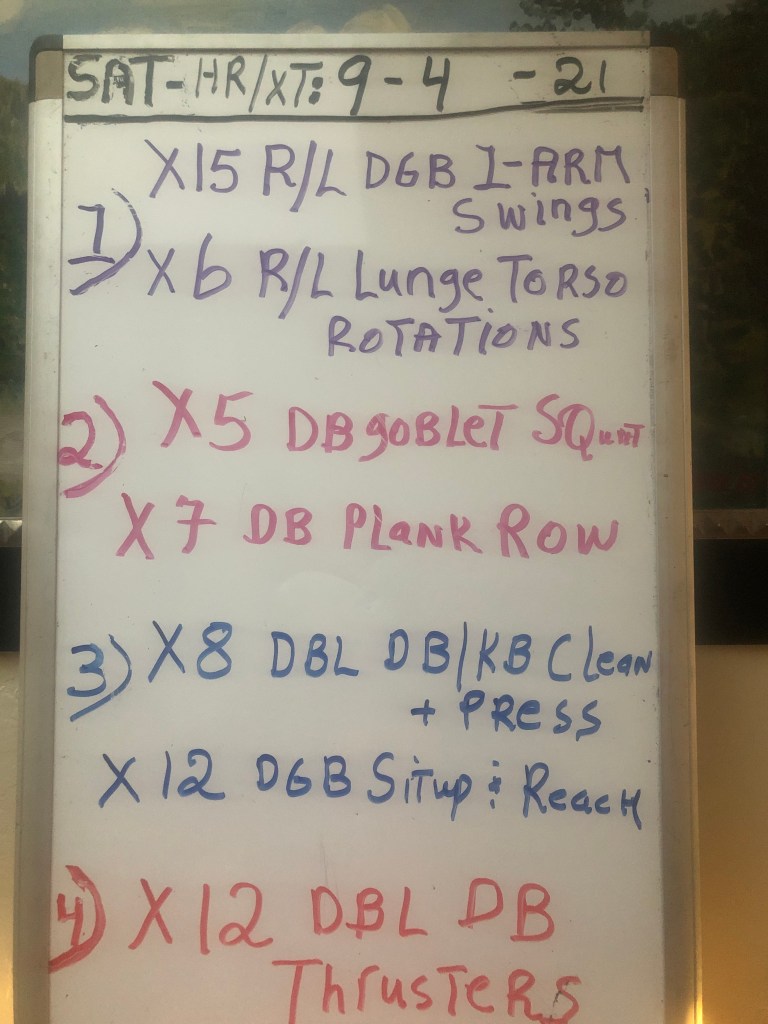 SAT-HR/XT: 9-4 -21
1) X15 R/L DGB 1-ARM
Swings
X6 R/L Lunge TORSO
ROTATIONS
2) X5 DB goBLeT SQuaT
X7 DB PLANK ROW
3) X8 DBL DB/KB Clean
+ PRess
X12 DGB SiTup & ReacH
4) X12 DBL DB
ThrusTeRs